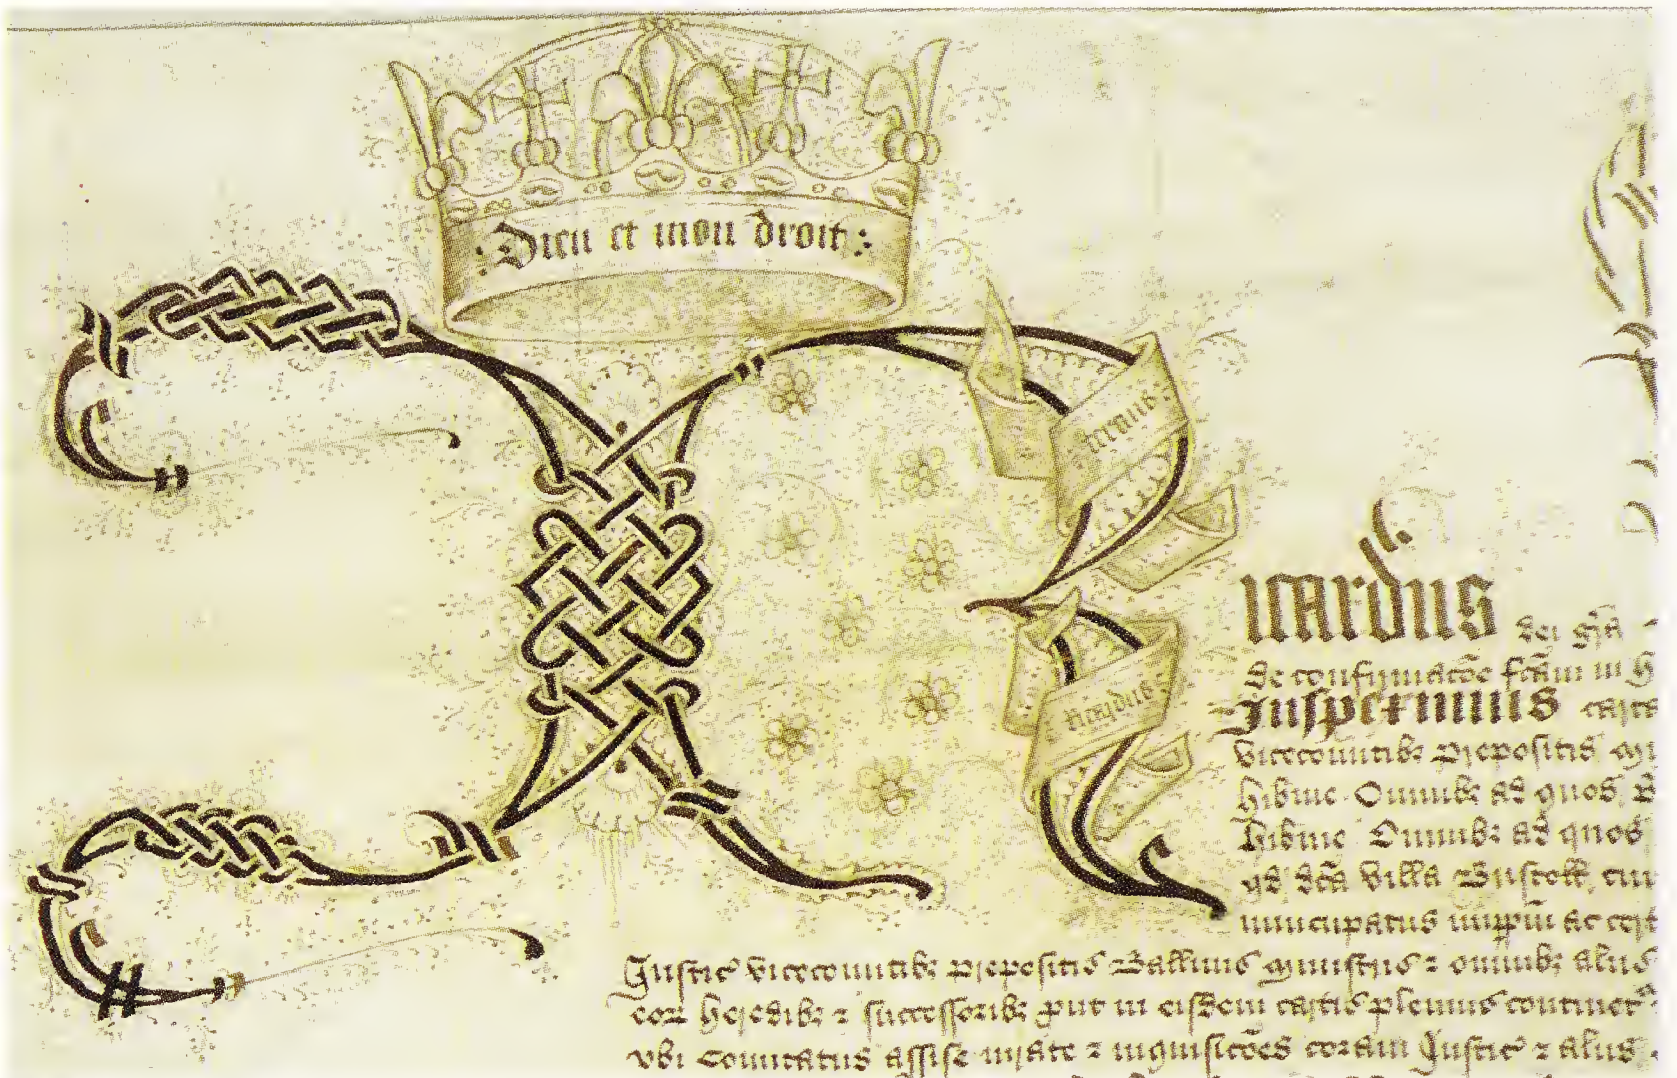 : Dieu et mon droit :
gracias
Ricardus
icardus dei gra
de confirmacoe fcam in H
Inspeximus carta
vicecomitibz prepositis mi
hibnie Omnibz ad quos
hibnie Omnibz ad quos
qd dca villa Bristoll cu
nuncupatus imppm ac cert
Justic vicecomitibz prepositis Ballivis ministris z omnibz aliis
eor heredibz z successoribz put in eisdem cartis plenius continet
vbi Comitatus assise iurate z inquisicoes coram Justic z aliis